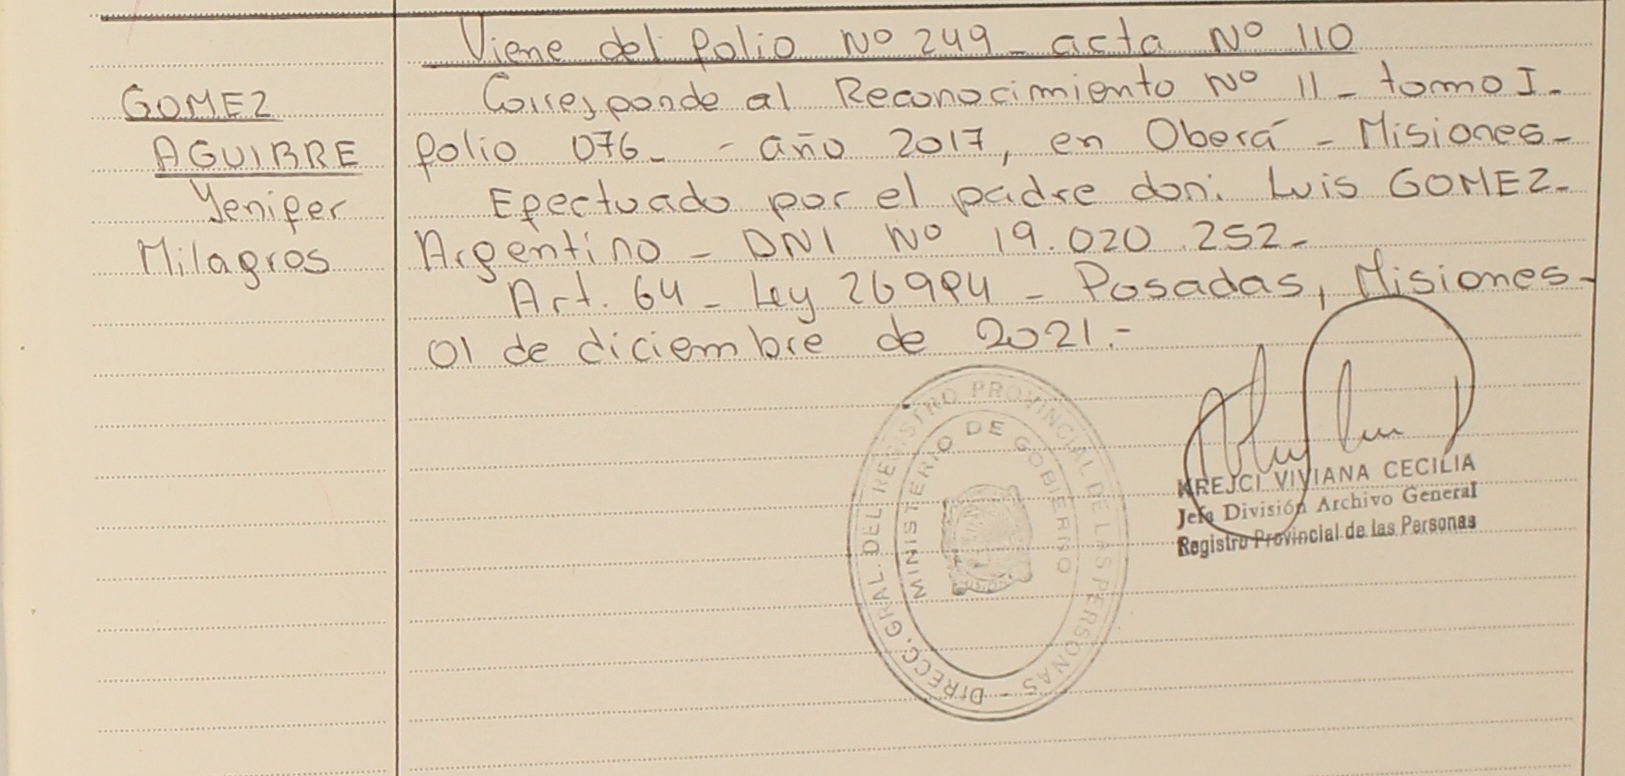 Viene del folio Nº 249 - acta Nº 110
GOMEZ
AGUIRRE
Yenifer
Milagros
Corresponde al Reconocimiento Nº 11 - tomo I.
folio 076 - - año 2017, en Oberá - Misiones -
Efectuado por el padre don: Luis GOMEZ.
Argentino - DNI Nº 19.020.252 -
Art. 64 - Ley 26994 - Posadas, Misiones -
01 de diciembre de 2021.-
DIRECC. GRAL. DEL REGISTRO PROVINCIAL DE LAS PERSONAS -
MINISTERIO DE GOBIERNO
KREJCI VIVIANA CECILIA
Jefa División Archivo General
Registro Provincial de las Personas